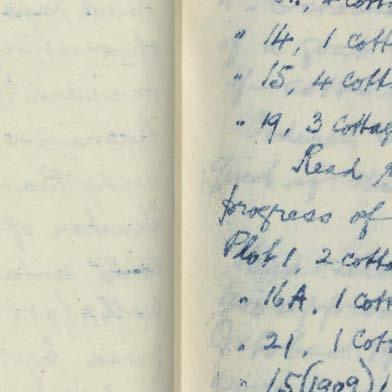 " 14, 1 cott
" 15, 4 cott
" 19, 3 Cottag
Read
progress of
Plot 1, 2 cotta
" 16A, 1 cot
" 21, 1 Cot
" 15 (1909)